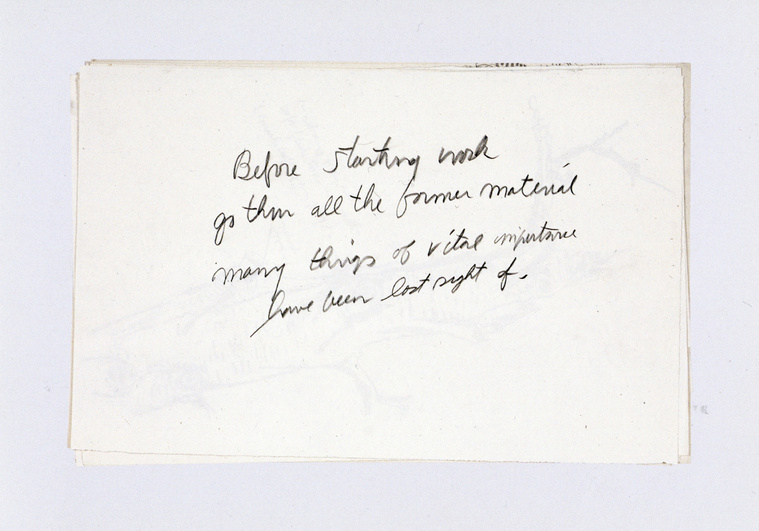 Before starting work
go thru all the former material
many things of vital importance
have been lost sight of.